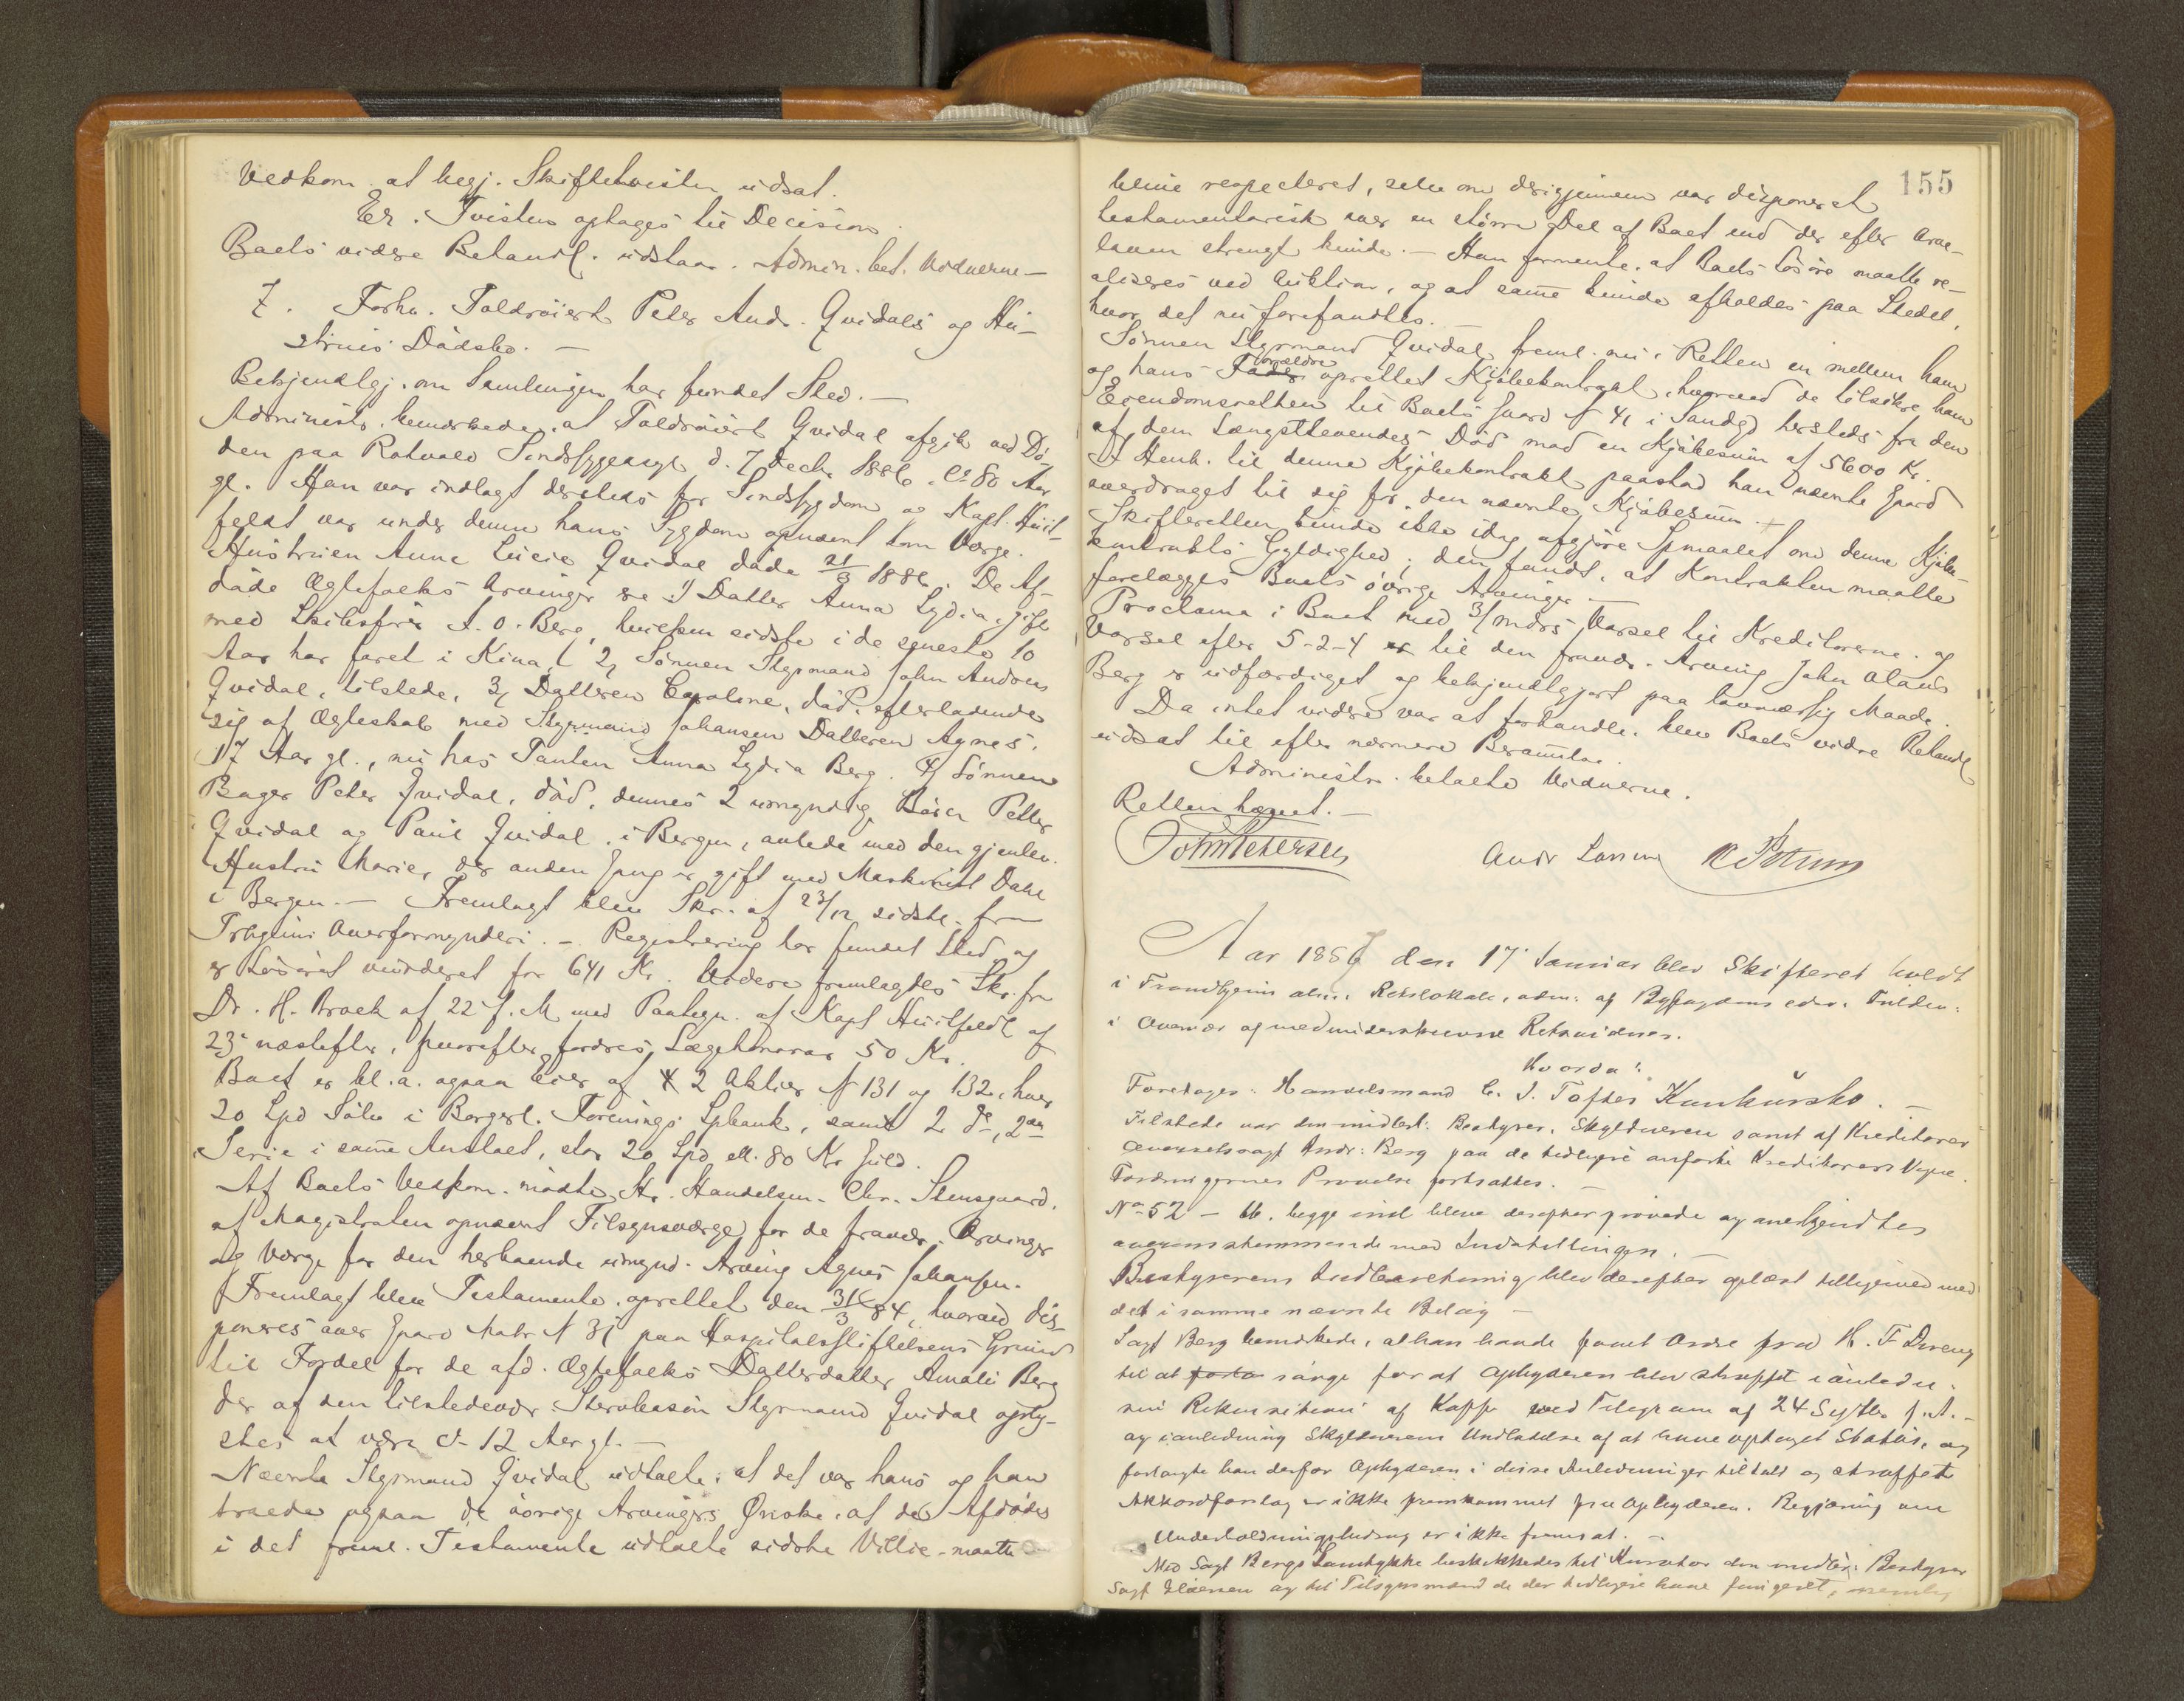 Vedkom. at begj. Skiftetvisten udsat.
Er. Tvisten optages til Decision.
Boets videre Behandl. udstaar. Admin. bet. Vidnerne —
7. Forhv. Toldroriert Peter Andr. Qvidals og Hu-
struis Dødsbo. —
Bekjendtgj. om Samlingen har fundet Sted. —
Administr. bemærkede, at Toldroiert Qvidal afgik ved Dø-
den paa Rotvold Sindssygeasyl d. 7 Decbr. 1886, ca 80 Aar
gl. Han var indlagt dersteds for Sindssygdom og Kapt. Huit-
feldt var under denne hans Sygdom opnævnt som Værge.
Hustruen Anne Lucie Qvidal døde 21/3 1886. De Af-
døde Ægtefolks Arvinger ere 1) Datter Anna Lydia, gift
med Skibsfør. A. O. Berg, hvilken sidste i de seneste 10
Aar har faret i Kina, 2) Sønnen Styrmand John Andreas
Qvidal, tilstede, 3) Datteren Caroline, død, efterladende
sig af Ægteskab med Styrmand Johansen Datteren Agnes,
17 Aar gl., nu hos Tanten Anna Lydia Berg. 4) Sønnen
Bager Peter Qvidal, død, dennes 2 umyndige Børn Petter
Qvidal og Paul Qvidal, i Bergen, avlede med den gjenlev.
Hustru Marie, der anden Gang er gift med Maskinist Dahl
i Bergen. — Fremlagt blev Skr. af 23/12 sidstl. fra
Trhjems Overformynderi. — Registrering har fundet Sted og
er Løsøret vurderet for 641 Kr. Videre fremlagdes Skr. fra
Dr. H. Brock af 22 f. M. med Paategn. af Kapt Huitfeldt af
23' næstefter, hvorefter fordres Lægehonorar 50 Kr.
Boet er bl. a. ogsaa Eier af 2 Aktier N 131 og 132, hver
20 Spd Sølv i Borgerl. Forenings Spbank, samt 2 do, 2den
Serie i samme Anstalt, stor 20 Spd ell. 80 Kr Guld.
Af Boets Vedkom. mødte Hr. Handelsm. Chr. Stensgaard,
af Magistraten opnævnt Tilsynsværge for de fravær. Arvinger
og Værge for den herboende umynd. Arving Agnes Johansen.
Fremlagt blev Testamente, oprettet den 31/3 84, hvorved dis-
poneres over Gaard Matr N 31 paa Hospitalsstiftelsens Grund
til Fordel for de afd. Ægtefolks Datterdatter Amali Berg
der af den tilstedevær. Stervbosøn Styrmand Qvidal oply-
stes at være ca 12 Aar gl. —
Nævnte Styrmand Qvidal udtalte, at det var hans og han
troede ogsaa de øvrige Arvingers Ønske, at de Afdødes
i det freml. Testamente udtalte sidste Villie maatte
155
blive respecteret, selv om derigjennem var disponeret
testamentarisk over en større Del af Boet end der efter Arve-
loven strengt kunde. — Han formente, at Boets Løsøre maatte re-
aliseres ved Auktion, og at samme kunde afholdes paa Stedet,
hvor det nu forefandtes. —
Sønnen Styrmand Qvidal freml. nu i Retten en mellem ham
og hans Fader Forældre oprettet Kjøbekontrakt, hvorved de tilsikre ham
Eiendomsretten til Boets Gaard N 41 i Sandgd hersteds fra den
af dem Længstlevendes Død mod en Kjøbesum af 5600 Kr.
I Henh. til denne Kjøbekontrakt paastod han nævnte Gaard
overdraget til sig for den nævnte Kjøbesum. —
Skifteretten kunde ikke idag afgjøre Spmaalet om denne Kjøbe-
kontrakts Gyldighed, den fandt, at Kontrakten maatte
forelægges Boets øvrige Arvinger —
Proclama i Boet med 3/mdrs Varsel til Kreditorerne og
Varsel efter 5-2-4 til den fravær. Arving John Olaus
Berg er udfærdiget og bekjendtgjort paa lovmæssig Maade.
Da intet videre var at forhandle, blev Boets videre Behandl
udsat til efter nærmere Berammelse.
Administr. betalte Vidnerne.
Retten hævet. —
John Petersen Andr Larsen
Aar 1887 den 17' Januar blev Skifteret holdt
i Trondhjems alm. Retslokale, adm. af Byfogdens edsv. Fuldm.
i Overvær af medunderskrevne Retsvidner.
Hvorda:
Foretoges: Handelsmand C. J. Toftes Konkursbo. —
Tilstede var den midlert. Bestyrer, Skyldneren samt af Kreditorer
Overretssagf Andr. Berg paa de tidligere anførte Kreditorers Vegne.
Fordringernes Prøvelse fortsattes. —
No 52 — 66, begge incl bleve derefter prøvede og anerkjendtes
overensstemmende med Indstillingen. —
Bestyrerens Indberetning blev derefter oplæst tilligemed med
det i samme nævnte Bilag —
Sagf Berg bemærkede, at han havde faaet Ordre fra H. F.
til at sørge for at Opbyderen blev straffet i Anledn.
sin Rekvisition af Kaffe ved Telegram af 24 Septbr f. A. —
og i anledning Skyldnerens Undladelse af at have optaget Status, og
forlangte han derfor Opbyderen i disse Anledninger tiltalt og straffet
Akkordforslag er ikke fremkommet fra Opbyderen. Begjæring om
Underholdningsbidrag er ikke fremsat. —
Med Sagf Bergs Samtykke beskikkedes til Kurator den midler. Bestyrer
Sagf og til Tilsynsmænd de der tidligere have fungeret, nemlig